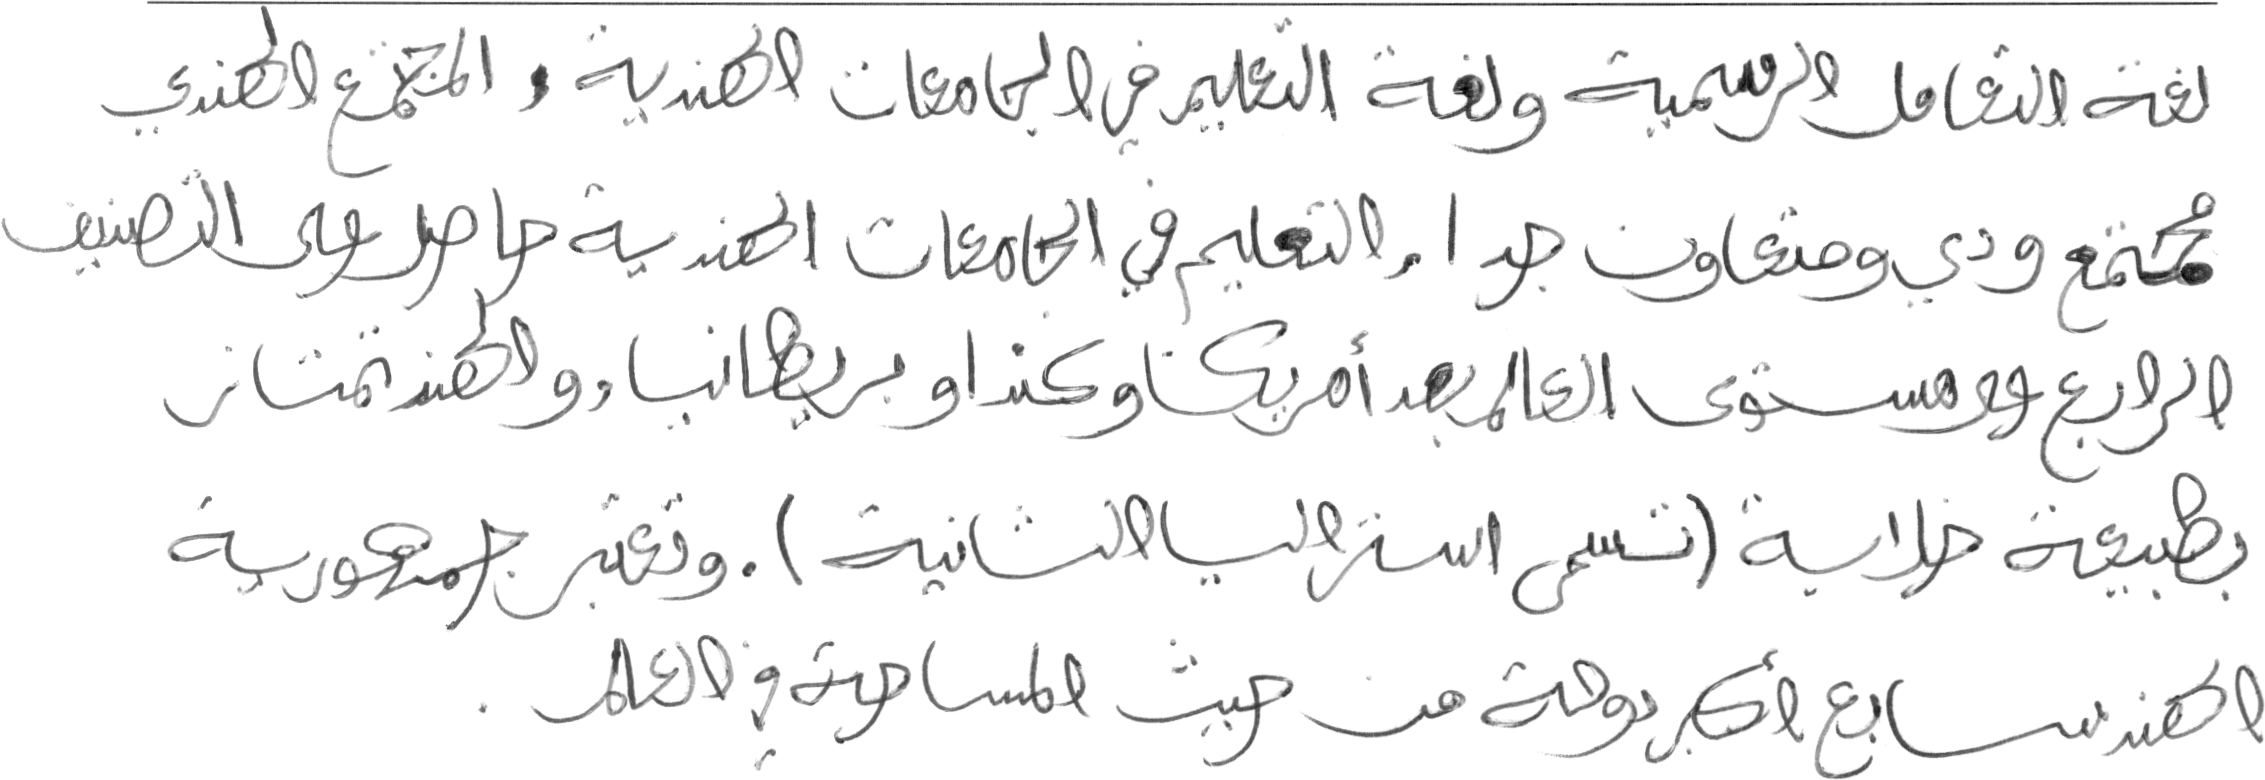 لغة التعامل الرسمية ولغة التعليم في الجامعات الهندية ، المجتمع الهندي
مجتمع ودي ومتعاون جدا ، التعليم في الجامعات الهندية حاصل على التصنيف
الرابع على مستوى العالم بعد أمريكا وكندا وبريطانيا ، والهند تمتاز
بطبيعة خلابة (تسمى استراليا الثانية) . وتعتبر جمهورية
الهند سابع أكبر دولة من حيث المساحة في العالم .